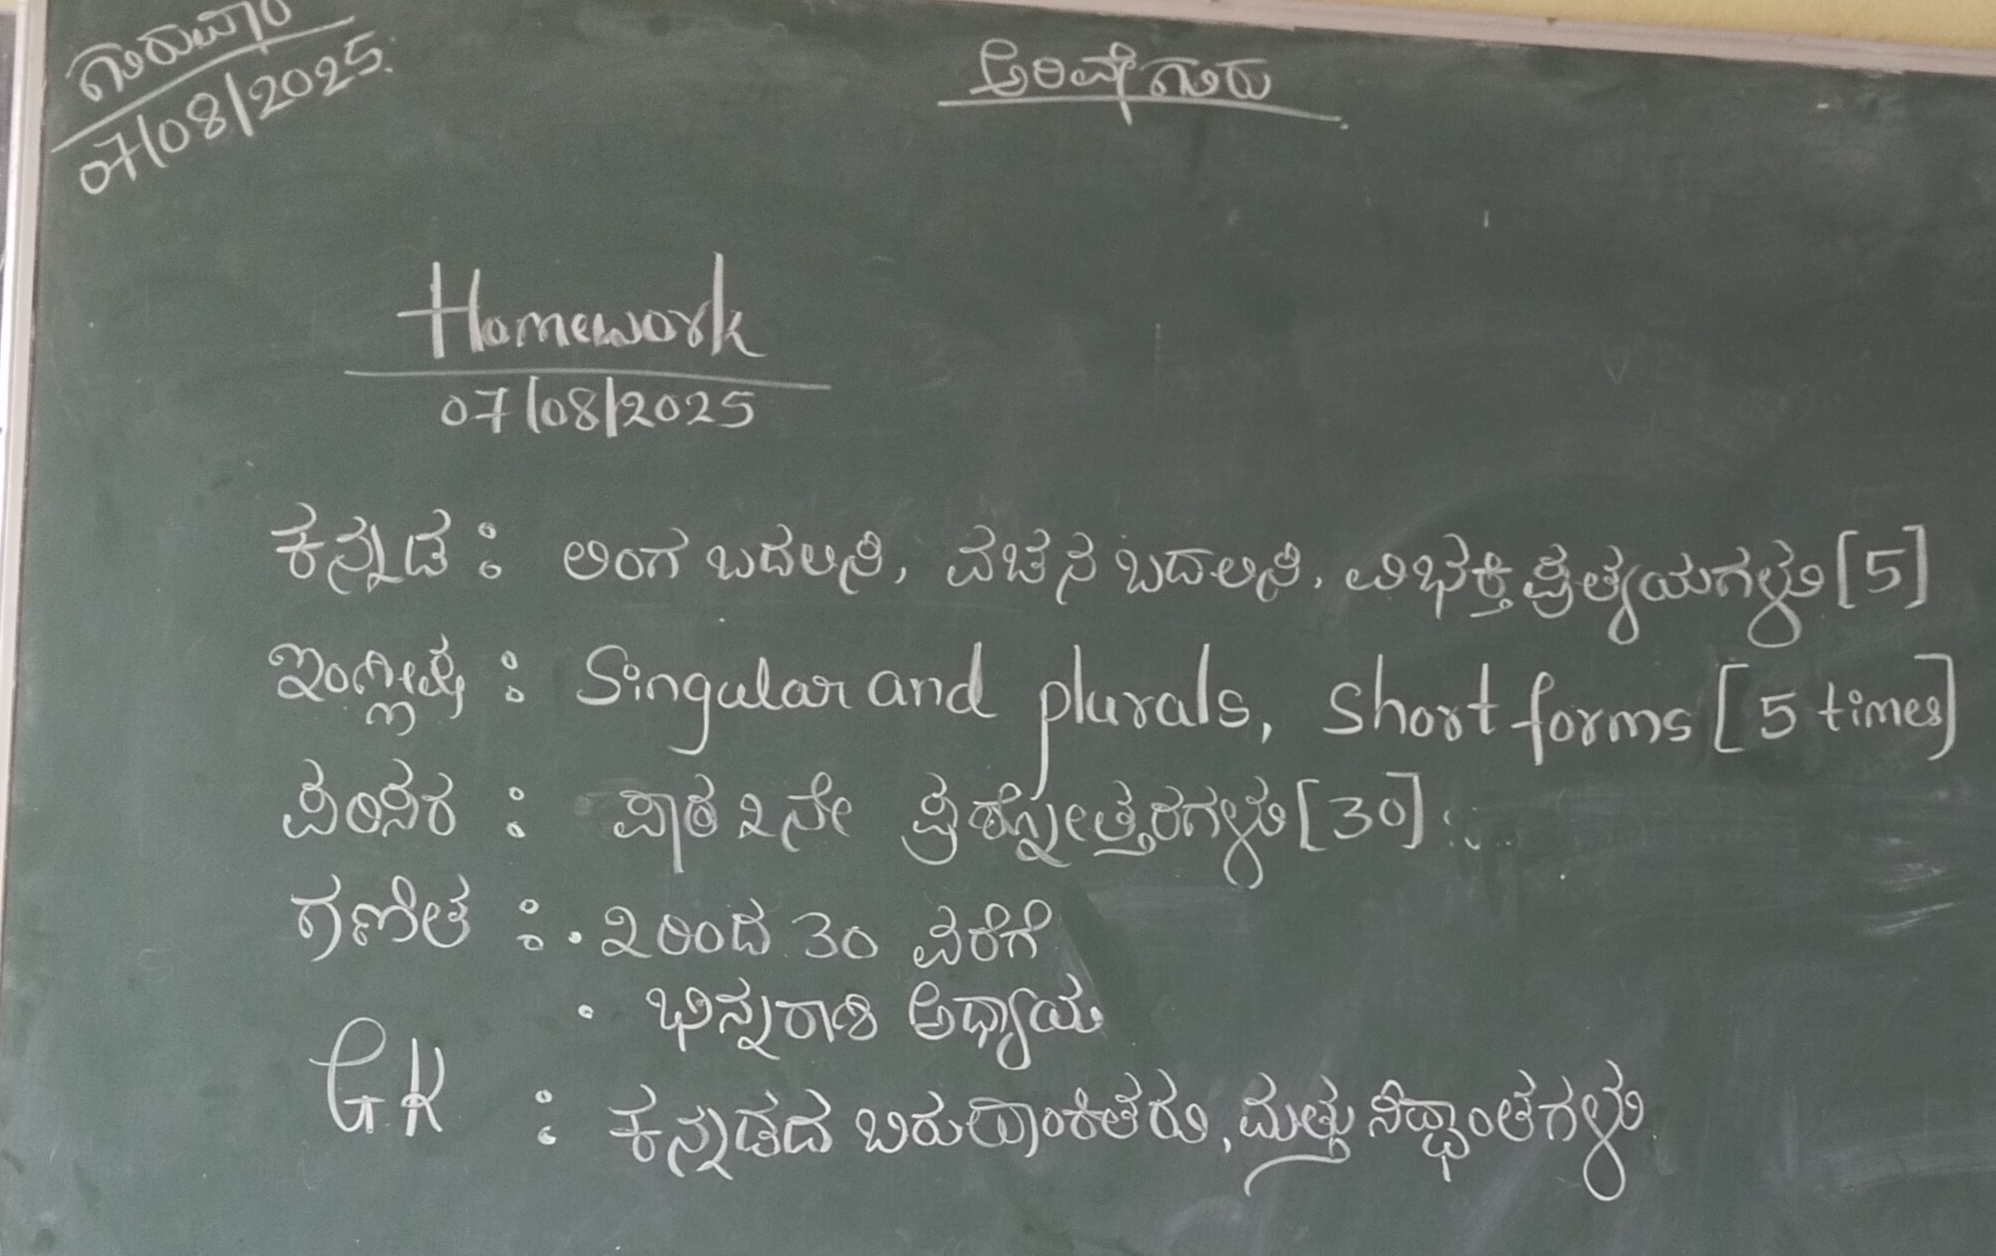 ಗುರುವಾರ
07/08/2025.
ಅರಿವೇ ಗುರು
Homework
07/08/2025
ಕನ್ನಡ : ಲಿಂಗ ಬದಲಿಸಿ, ವಚನ ಬದಲಿಸಿ, ವಿಭಕ್ತಿ ಪ್ರತ್ಯಯಗಳು [5]
ಇಂಗ್ಲೀಷ್ : Singular and plurals, Short forms [5 times]
ಪರಿಸರ : ಪಾಠ ೩ನೇ ಪ್ರಶ್ನೋತ್ತರಗಳು [30].
ಗಣಿತ : • ೩ ರಿಂದ 30 ವರೆಗೆ
• ಭಿನ್ನರಾಶಿ ಅಧ್ಯಾಯ
GK : ಕನ್ನಡದ ಬಿರುದಾಂಕಿತರು, ಮತ್ತು ಸಿದ್ಧಾಂತಗಳು